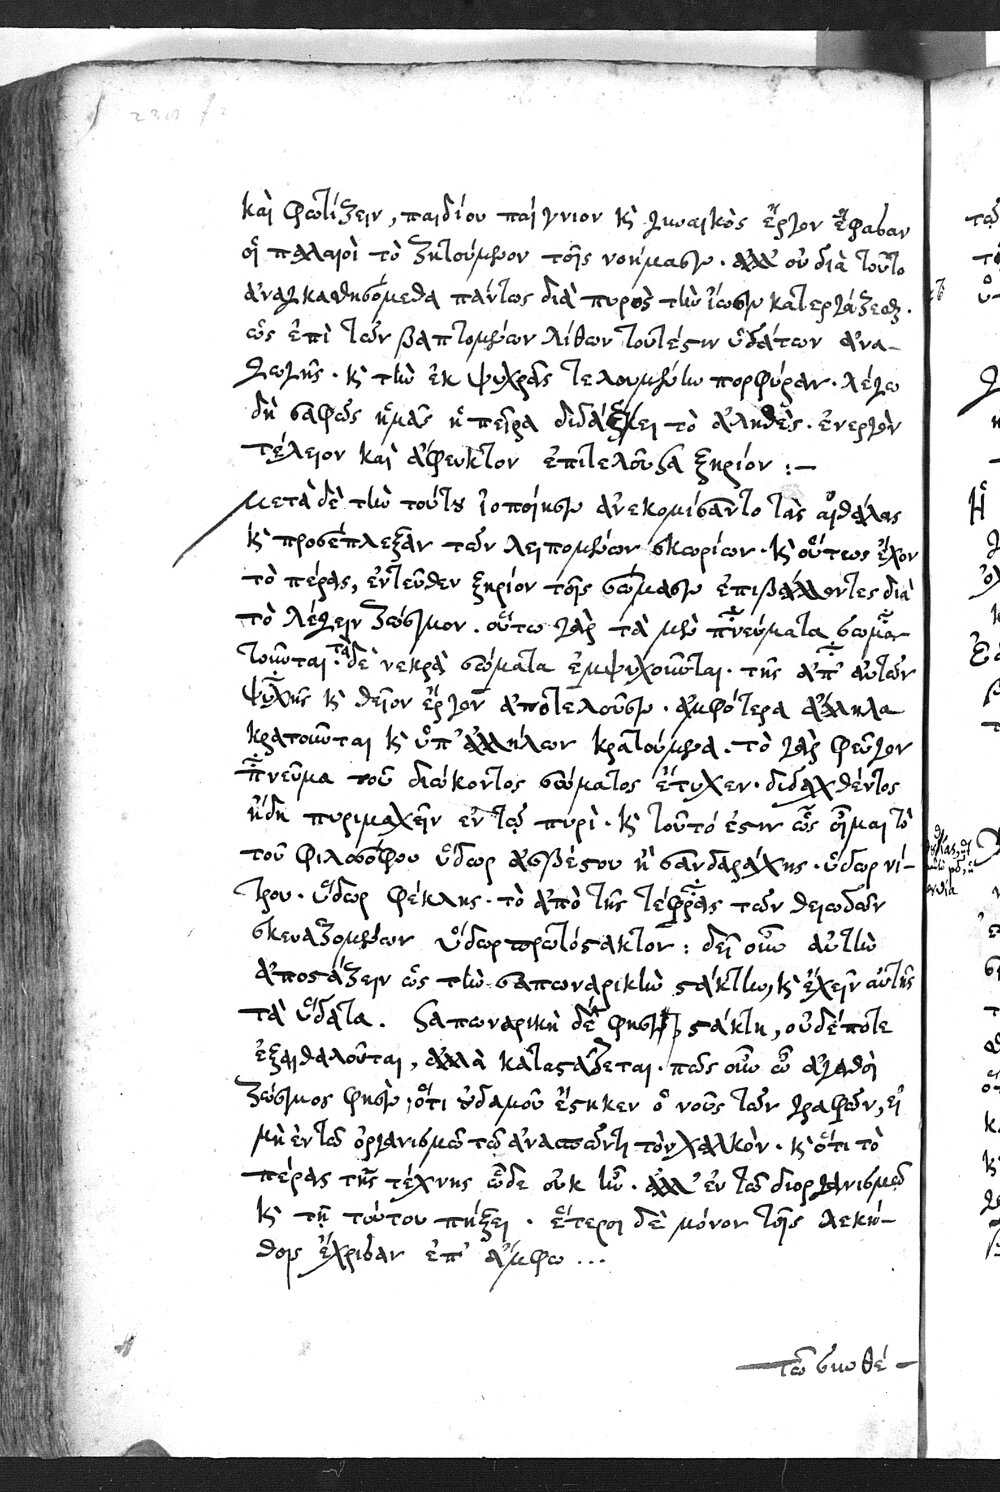 καὶ φωτίζειν, παιδίου παίγνιον κ̀ γυναικὸς ἔργον ἔφασαν
οἱ παλαιοὶ τὸ ζητούμενον τοῖς νοήμασιν. ἀλλ' οὐ διὰ τοῦτο
ἀναγκασθησόμεθα πάντως διὰ πυρὸς τὴν ἴωσιν κατεργάζεσθαι.
ὡς ἐπὶ τῶν βαπτομένων λίθων τουτέστιν ὑδάτων ἀνα-
γωγῆς. κ̀ τὴν ἐκ ψυχρᾶς τελουμένην πορφύραν. λέγω
δὴ σαφῶς ἡμᾶς ἡ πεῖρα διδάξει τὸ ἀληθὲς. ἐνεργὸν
τέλειον καὶ ἄφευκτον ἐπιτελοῦσα ξηρίον :—
μετὰ δὲ τὴν τούτου ἰοποίησιν ἀνεκομίσαντο τὰς αἰθάλας
κ̀ προσέπλεξαν τῶν λειπομένων σκωρίων. κ̀ οὕτως ἔχον
τὸ πέρας, ἐντεῦθεν ξηρίον τοῖς σώμασιν ἐπιβάλλοντες διὰ
τὸ λέγειν ζώσιμον. οὕτω γὰρ τὰ μὲν πνεύματα σωμα
τοῦνται τὰ δὲ νεκρὰ σώματα ἐμψυχοῦνται. τῆς ἀπ' αὐτῶν
ψυχῆς κ̀ θεῖον ἔργον ἀποτελοῦσιν. ἀμφότερα ἄλληλα
κρατοῦνται κ̀ ὑπ' ἀλλήλων κρατούμενα. τὸ γὰρ φεῦγον
πνεῦμα τοῦ διώκοντος σώματος ἔτυχεν. διδαχθέντος
ἤδη πυριμαχεῖν ἐν τῷ πυρὶ. κ̀ τοῦτό ἐστιν ὡς οἶμαι τὸ
τοῦ φιλοσόφου ὕδωρ ἀσβέστου ἢ σανδαράχης. ὕδωρ νί-
τρου. ὕδωρ φέκλης. τὸ ἀπὸ τῆς τέφρας τῶν θειωδῶν
σκευαζομένων ὕδωρ πρωτόστακτον : δεῖ οὖν αὐτὴν
ἀποστάζειν ὡς τὴν σαπωναρικὴν στάκτην, κ̀ ἔχειν αὐτῆς
τὰ ὕδατα. σαπωναρικὴ δέ φησιν στάκτη, οὐδέποτε
ἐξαιθαλοῦται, ἀλλὰ καταστάζεται. πῶς οὖν ὦ ἀγαθὲ
ζώσιμος φησὶν, ὅτι οὐδαμοῦ ἔστηκεν ὁ νοῦς τῶν γραφῶν, εἰ
μὴ ἐν τῷ ὀργανισμῷ τῷ ἀνασπῶντι τὸν χαλκὸν. κ̀ ὅτι τὸ
πέρας τῆς τέχνης ὧδε οὐκ ἦν. ἀλλ' ἐν τῷ διοργανισμῷ
κ̀ τῇ τούτου πήξει. ἕτεροι δὲ μόνον τοῖς λεκύ-
θοις ἔχρισαν ἐπ' ἄμφω ...
τῶ συνθέ —